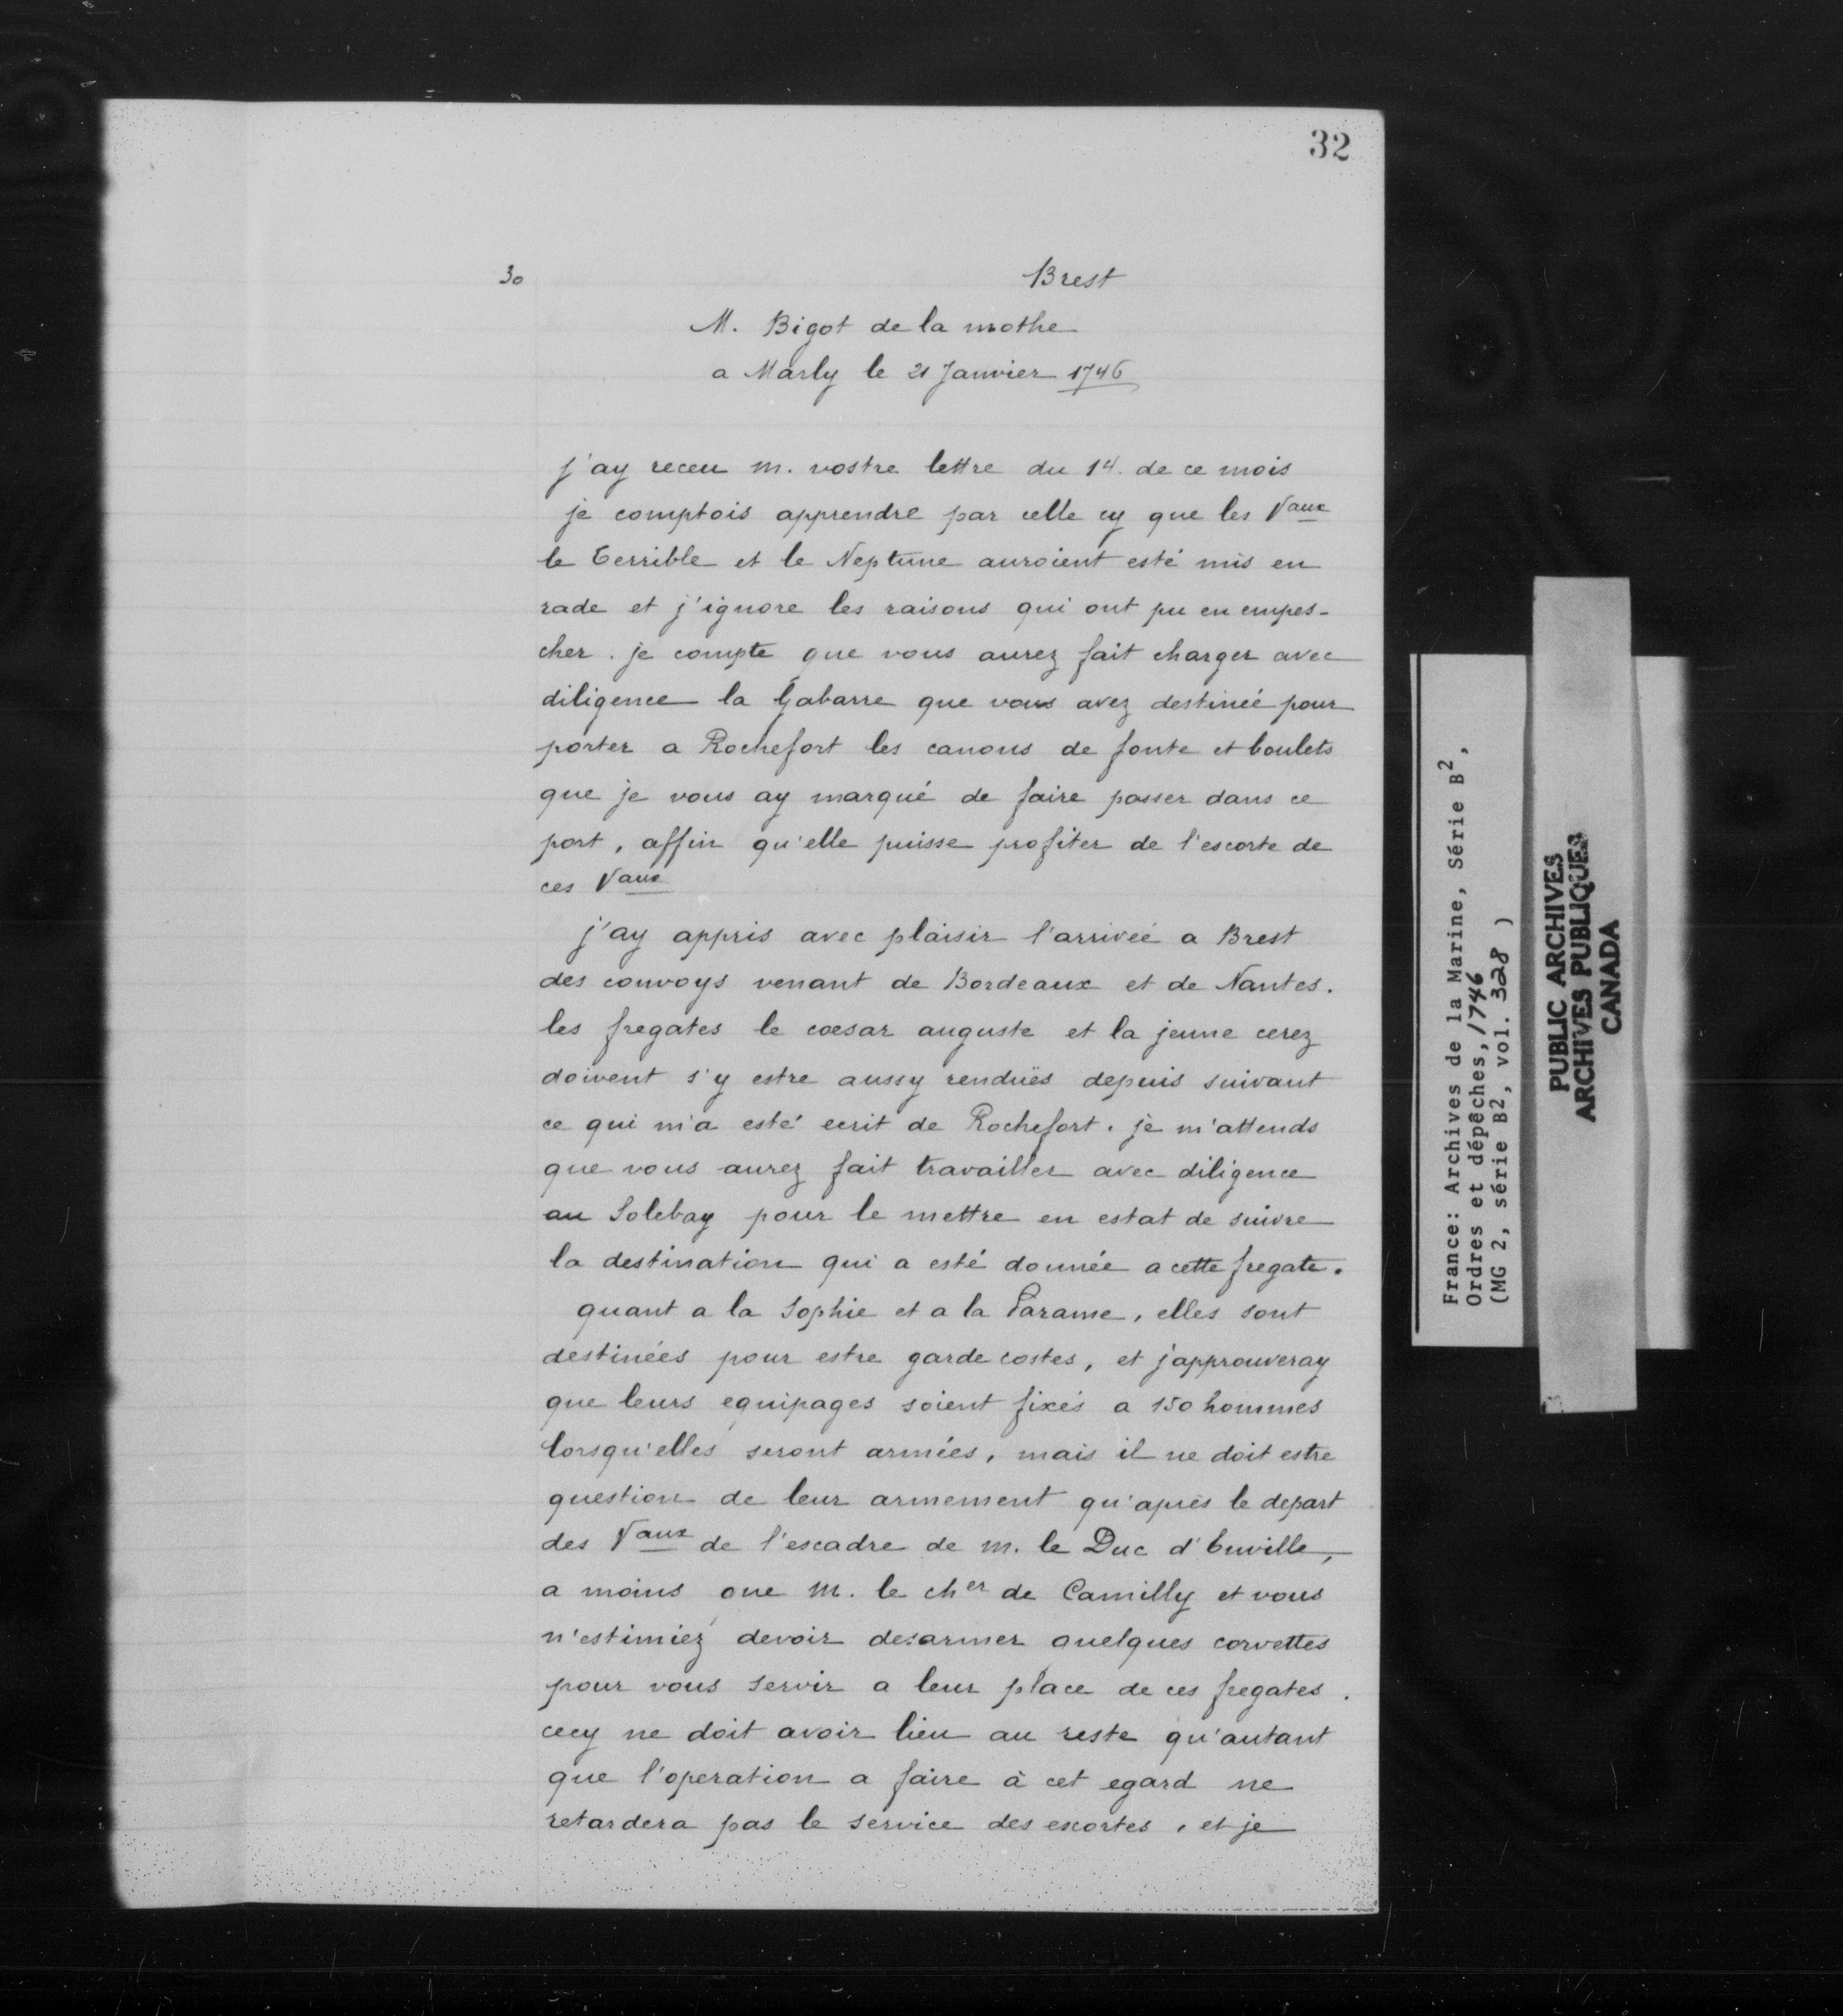 32
30
Brest
M. Bigot de la mothe
a Marly le 21 Janvier 1746
j'ay receu m. vostre lettre du 14. de ce mois
je comptois apprendre par celle cy que les Vaux
le Terrible et le Neptune auroient esté mis en
rade et j'ignore les raisons qui ont pu en empes-
cher. je compte que vous aurez fait charger avec
diligence la Gabarre que vous avez destinée pour
porter a Rochefort les canons de fonte et boulets
que je vous ay marqué de faire passer dans ce
port, affin qu'elle puisse profiter de l'escorte de
ces Vaux
j'ay appris avec plaisir l'arrivée a Brest
des convoys venant de Bordeaux et de Nantes.
les fregates le cœsar auguste et la jeune cerez
doivent s'y estre aussy renduës depuis suivant
ce qui m'a esté ecrit de Rochefort. je m'attends
que vous aurez fait travailler avec diligence
au Solebay pour le mettre en estat de suivre
la destination qui a esté donnée a cette fregate.
quant a la Sophie et a la Parame, elles sont
destinées pour estre garde costes, et j'approuveray
que leurs equipages soient fixés a 150 hommes
lorsqu'elles seront armées, mais il ne doit estre
question de leur armement qu'après le depart
des Vaux de l'escadre de m. le Duc d'Enville,
a moins que M. le cher de Camilly et vous
n'estimiez devoir desarmer quelques corvettes
pour vous servir a leur place de ces fregates.
cecy ne doit avoir lieu au reste qu'autant
que l'operation a faire à cet egard ne
retardera pas le service des escortes, et je
France: Archives de la Marine, Série B2,
Ordres et dépêches, 1746
(MG 2, série B2, vol. 328 )
PUBLIC ARCHIVES
ARCHIVES PUBLIQUES
CANADA